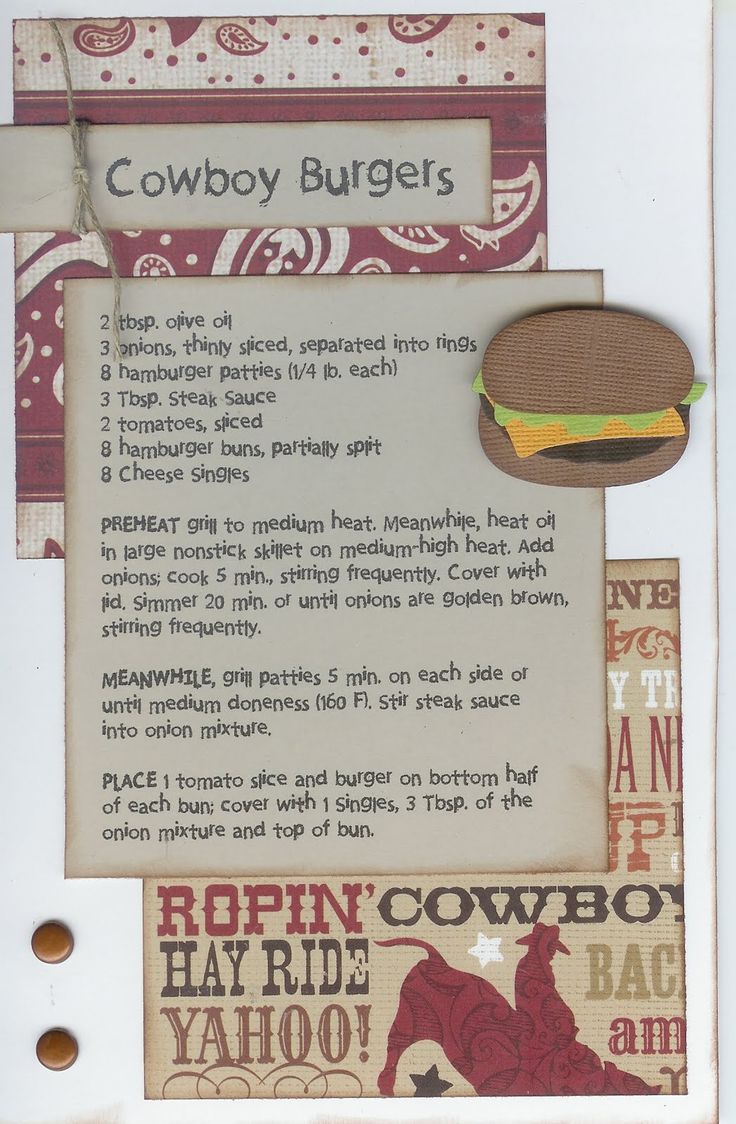 Cowboy Burgers
2 tbsp. olive oil
3 onions, thinly sliced, separated into rings
8 hamburger patties (1/4 lb. each)
3 Tbsp. Steak Sauce
2 tomatoes, sliced
8 hamburger buns, partially split
8 Cheese Singles
PREHEAT grill to medium heat. Meanwhile, heat oil
in large nonstick skillet on medium-high heat. Add
onions; cook 5 min., stirring frequently. Cover with
lid. Simmer 20 min. or until onions are golden brown,
stirring frequently.
MEANWHILE, grill patties 5 min. on each side or
until medium doneness (160 F). Stir steak sauce
into onion mixture.
PLACE 1 tomato slice and burger on bottom half
of each bun; cover with 1 Singles, 3 Tbsp. of the
onion mixture and top of bun.
NE
Y TR
DA N
UP
ROPIN' COWBOY
HAY RIDE
BAC
YAHOO!
am